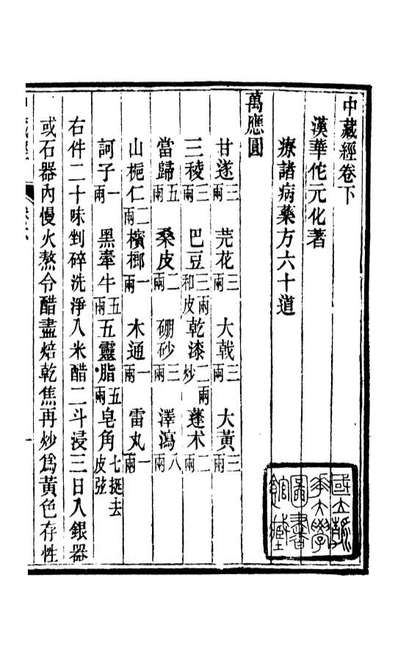 中藏經卷下
漢華佗元化著
療諸病藥方六十道
萬應圓
甘遂三兩 芫花三兩 大戟三兩 大黃三兩
三稜三兩 巴豆二兩和皮 乾漆二兩炒 蓬朮二兩
當歸五兩 桑皮二兩 硼砂三兩 澤瀉八兩
山梔仁二兩 檳榔一兩 木通一兩 雷丸一兩
訶子一兩 黑牽牛五兩 五靈脂五兩 皂角七挺去皮弦
右件二十味剉碎洗淨入米醋二斗浸三日入銀器
或石器內慢火熬令醋盡焙乾焦再炒爲黃色存性